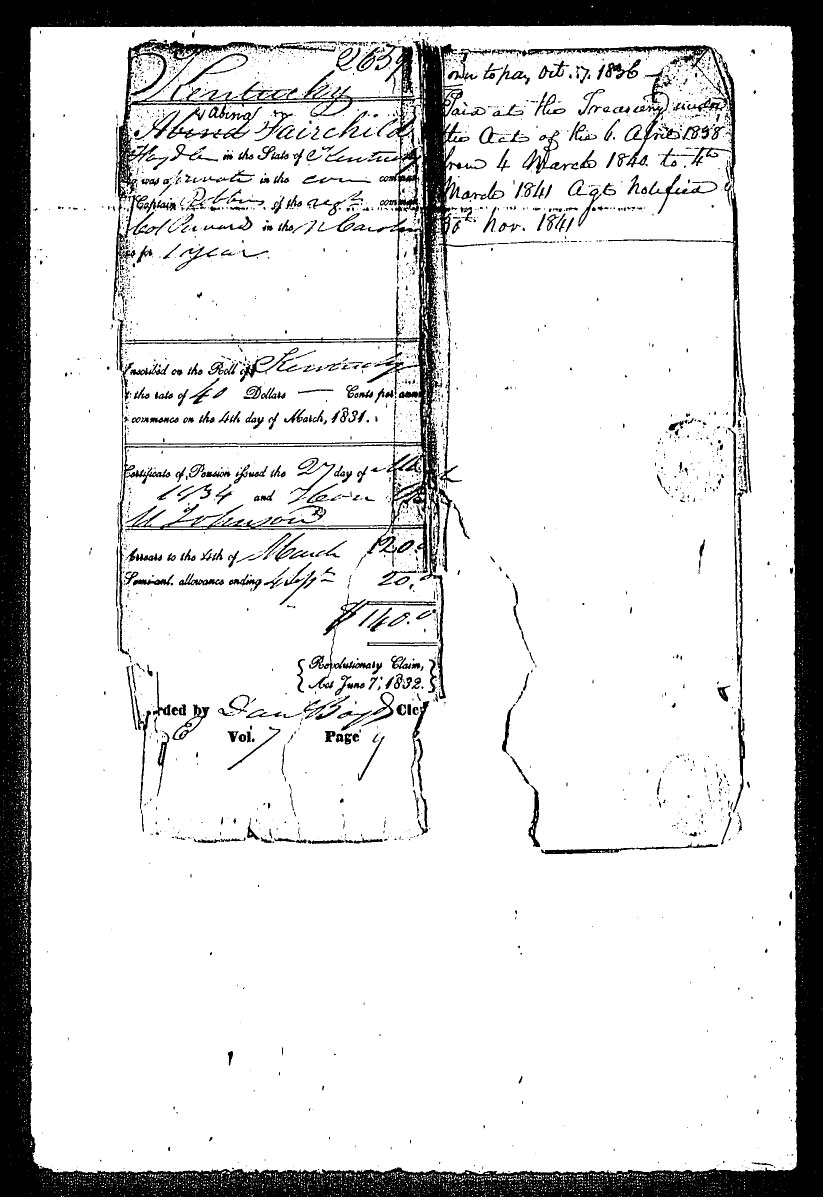 2639
Kentucky
Abina
Abind Fairchild
Floyd Co in the State of Kentucky
was a private in the com
Captain of the regt
Col in the N Carolin
for 1 year
Inscribed on the Roll of Kentucky
the rate of 40 Dollars — Cents per ann
commence on the 4th day of March, 1831.
Certificate of Pension issued the 27 day of
1834 and Hon
M Johnson
Arrears to the 4th of March 120.
Semi-anl. allowance ending 4 Sept 20.
$140.0
Revolutionary Claim,
Act June 7, 1832.
rded by Danl Boyd Cler
E Vol. 7 Page 9
to pay Oct. 7. 1836 —
Paid at the Treasury under
the Act of the 6. April 1838
from 4 March 1840 to 4th
March 1841 Agt Notified
Nov. 1841